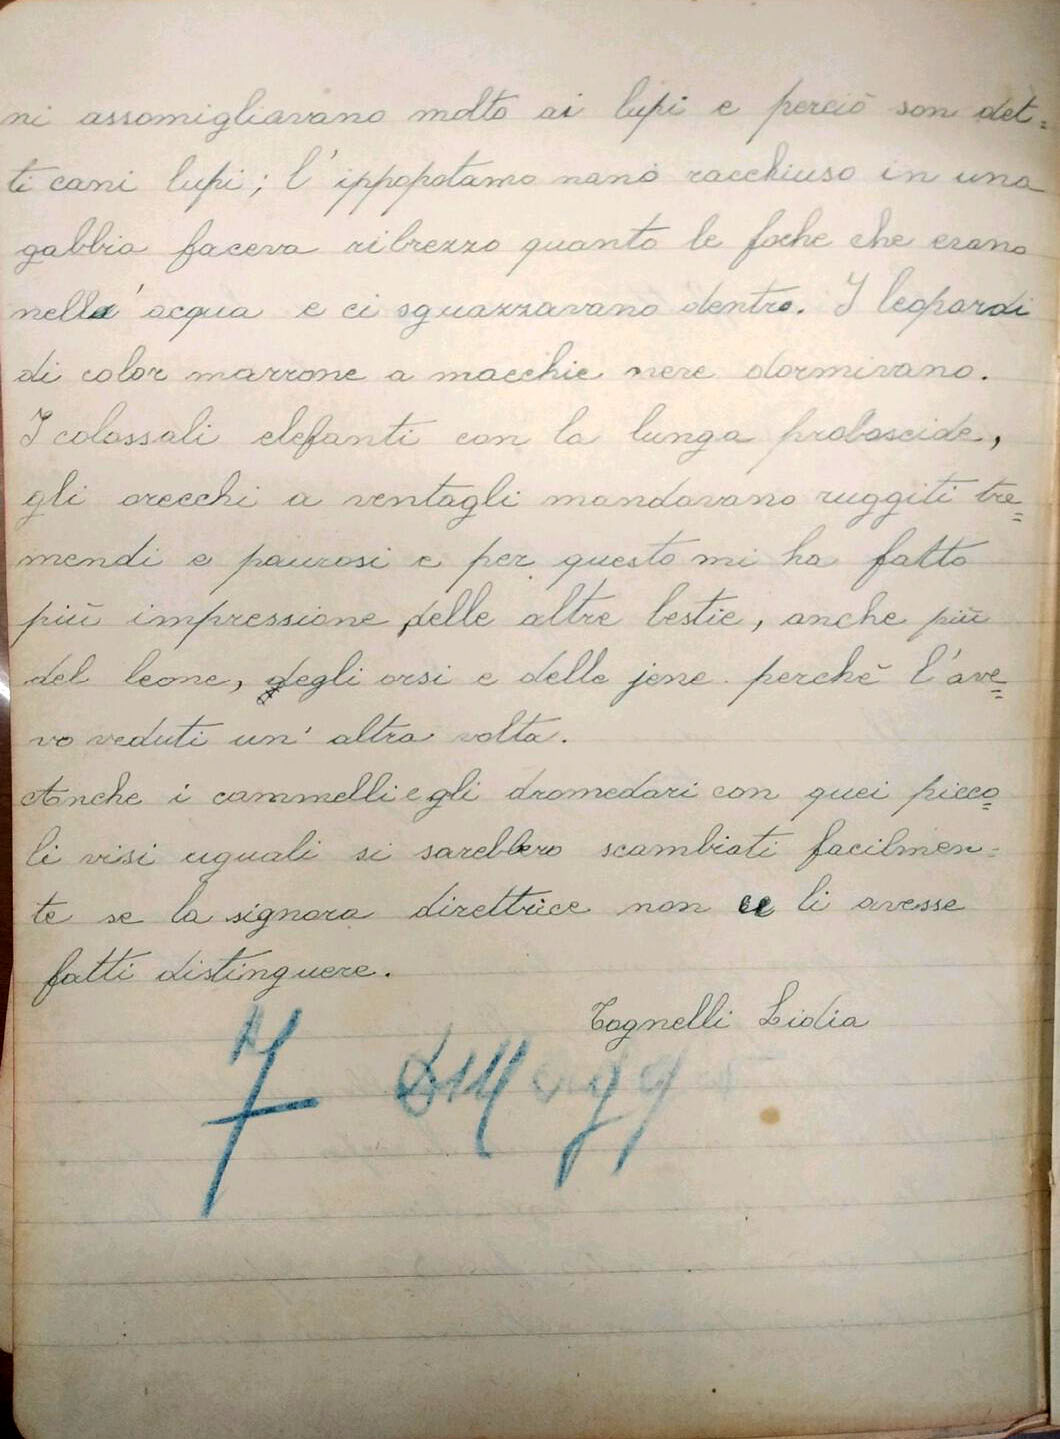 ni assomigliavano molto ai lupi e perciò son det=
ti cani lupi; l'ippopotamo nano racchiuso in una
gabbia faceva ribrezzo quanto le foche che erano
nell'acqua e ci sguazzavano dentro. I leopardi
di color marrone a macchie nere dormivano.
I colossali elefanti con la lunga proboscide,
gli orecchi a ventagli mandavano ruggiti tre=
mendi e paurosi e per questo mi ha fatto
più impressione delle altre bestie, anche più
del leone, degli orsi e delle jene perchè l'ave=
vo veduti un'altra volta.
Anche i cammelli e gli dromedari con quei picco=
li visi uguali si sarebbero scambiati facilmen=
te se la signora direttrice non li avesse
fatti distinguere.
Tognelli Lidia
7